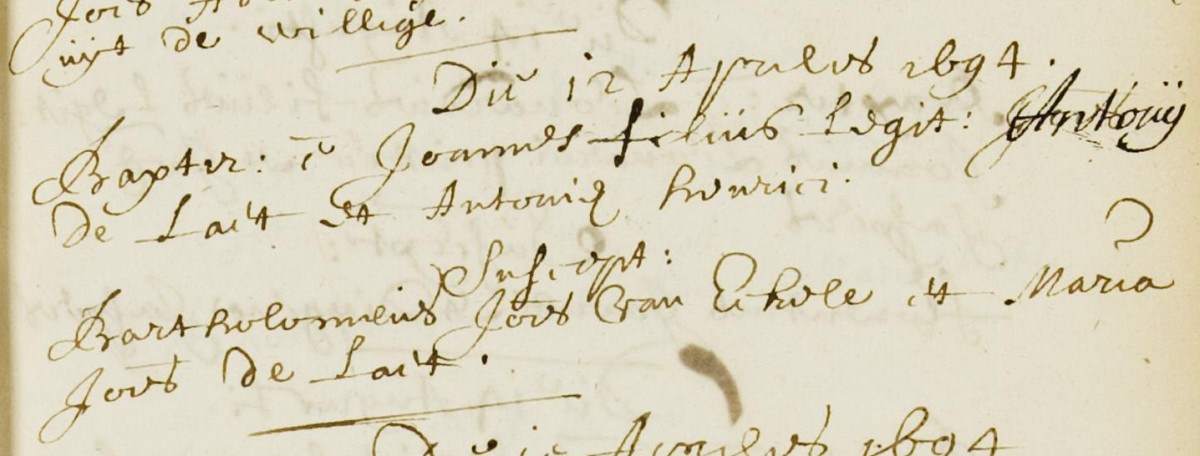 uyt de willige.
Die 12 Aprilis 1694.
Baptiz: ē Joannes filius Legit: Anthonij
de Lait et Antoniæ henrici.
Suscept:
Bartholomeus Jois van Eckele et Maria
Jois de Lait.
Aprilis 1694